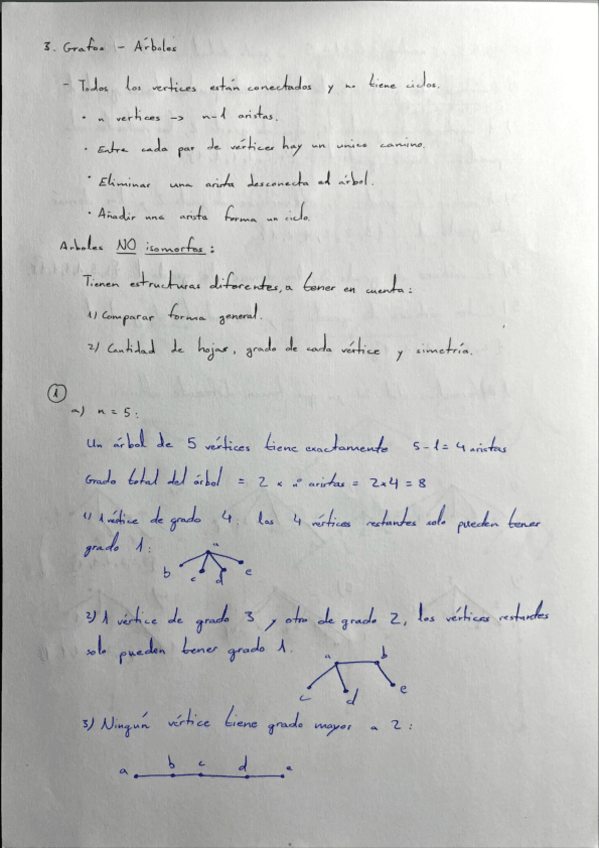 3. Grafos - Árboles
- Todos los vertices están conectados y no tiene ciclos.
· n vertices -> n-1 aristas.
· Entre cada par de vértices hay un unico camino.
· Eliminar una arista desconecta al árbol.
· Añadir una arista forma un ciclo.
Arboles NO isomorfos:
Tienen estructuras diferentes, a tener en cuenta:
1) Comparar forma general.
2) Cantidad de hojas, grado de cada vértice y simetría.
1
a) n = 5:
Un árbol de 5 vértices tiene exactamente 5-1=4 aristas
Grado total del árbol = 2 x nº aristas = 2x4 = 8
1) 1 vértice de grado 4: los 4 vértices restantes solo pueden tener
grado 1:
a
b c d e
2) 1 vértice de grado 3 y otro de grado 2, los vértices restantes
solo pueden tener grado 1.
a b
c d e
3) Ningún vértice tiene grado mayor a 2:
a b c d e